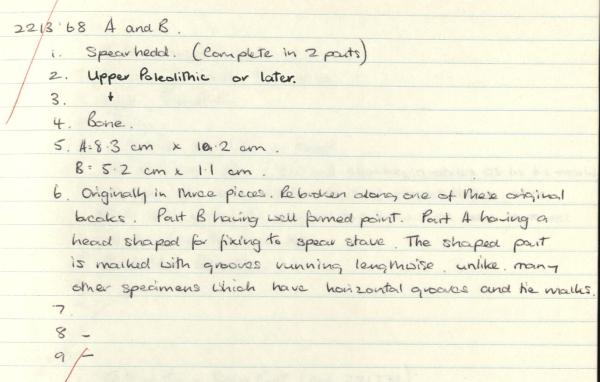 2213'68 A and B.
1. Spearhead. (Complete in 2 parts)
2. Upper Paleolithic or later.
3. ↓
4. Bone.
5. A: 8.3 cm x 1.2 cm.
B: 5.2 cm x 1.1 cm.
6. Originally in three pieces. Rebroken along one of these original
breaks. Part B having well formed point. Part A having a
head shaped for fixing to spear stave. The shaped part
is marked with grooves running lengthwise, unlike many
other specimens which have horizontal grooves and tie marks.
7.
8 -
9 -